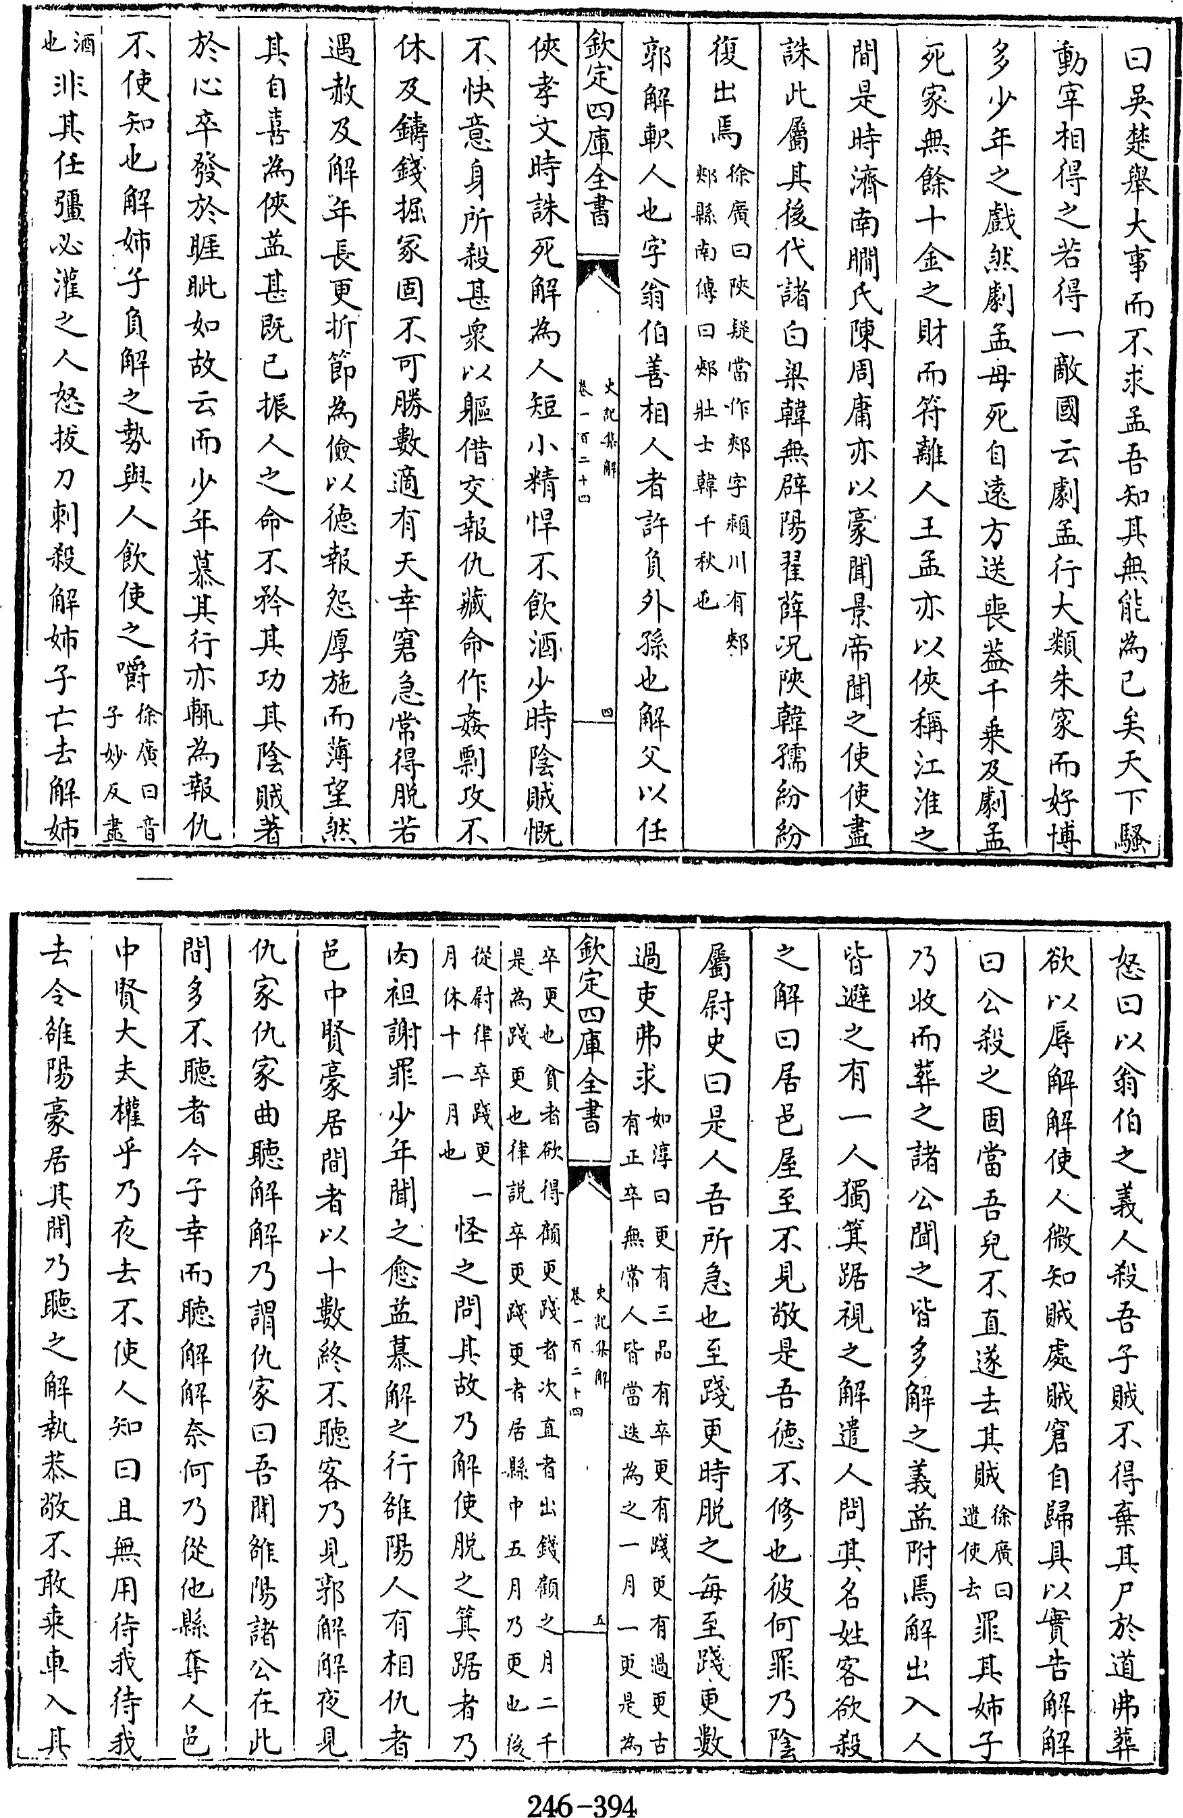 曰吳楚舉大事而不求孟吾知其無能為已矣天下騷
動宰相得之若得一敵國云劇孟行大類朱家而好博
多少年之戲然劇孟母死自遠方送喪蓋千乘及劇孟
死家無餘十金之財而符離人王孟亦以俠稱江淮之
間是時濟南瞷氏陳周庸亦以豪聞景帝聞之使使盡
誅此屬其後代諸白梁韓無辟陽翟薛況陜韓孺紛紛
復出焉徐廣曰陜疑當作郟字潁川有郟
郟縣南傅曰郟壯士韓千秋也
郭解軹人也字翁伯善相人者許負外孫也解父以任
欽定四庫全書
史記集解
卷一百二十四
四
俠孝文時誅死解為人短小精悍不飲酒少時陰賊慨
不快意身所殺甚衆以軀借交報仇藏命作姦剽攻不
休及鑄錢掘冢固不可勝數適有天幸窘急常得脫若
遇赦及解年長更折節為儉以德報怨厚施而薄望然
其自喜為俠益甚既已振人之命不矜其功其陰賊著
於心卒發於睚眦如故云而少年慕其行亦輒為報仇
不使知也解姊子負解之勢與人飲使之嚼徐廣曰音
子妙反盡
酒
也非其任彊必灌之人怒拔刀刺殺解姊子亡去解姊
怒曰以翁伯之義人殺吾子賊不得棄其尸於道弗葬
欲以辱解解使人微知賊處賊窘自歸具以實告解解
曰公殺之固當吾兒不直遂去其賊徐廣曰
遣使去罪其姊子
乃收而葬之諸公聞之皆多解之義益附焉解出入人
皆避之有一人獨箕踞視之解遣人問其名姓客欲殺
之解曰居邑屋至不見敬是吾德不修也彼何罪乃陰
屬尉史曰是人吾所急也至踐更時脫之每至踐更數
過吏弗求如淳曰更有三品有卒更有踐更有過更古
有正卒無常人皆當迭為之一月一更是為
欽定四庫全書
史記集解
卷一百二十四
五
卒更也貧者欲得顧更踐者次直者出錢顧之月二千
是為踐更也律説卒更踐更者居縣中五月乃更也後
從尉律卒踐更一
月休十一月也怪之問其故乃解使脫之箕踞者乃
肉袒謝罪少年聞之愈益慕解之行雒陽人有相仇者
邑中賢豪居間者以十數終不聽客乃見郭解解夜見
仇家仇家曲聽解解乃謂仇家曰吾聞雒陽諸公在此
間多不聽者今子幸而聽解解奈何乃從他縣奪人邑
中賢大夫權乎乃夜去不使人知曰且無用待我待我
去令雒陽豪居其間乃聽之解執恭敬不敢乘車入其
246-394